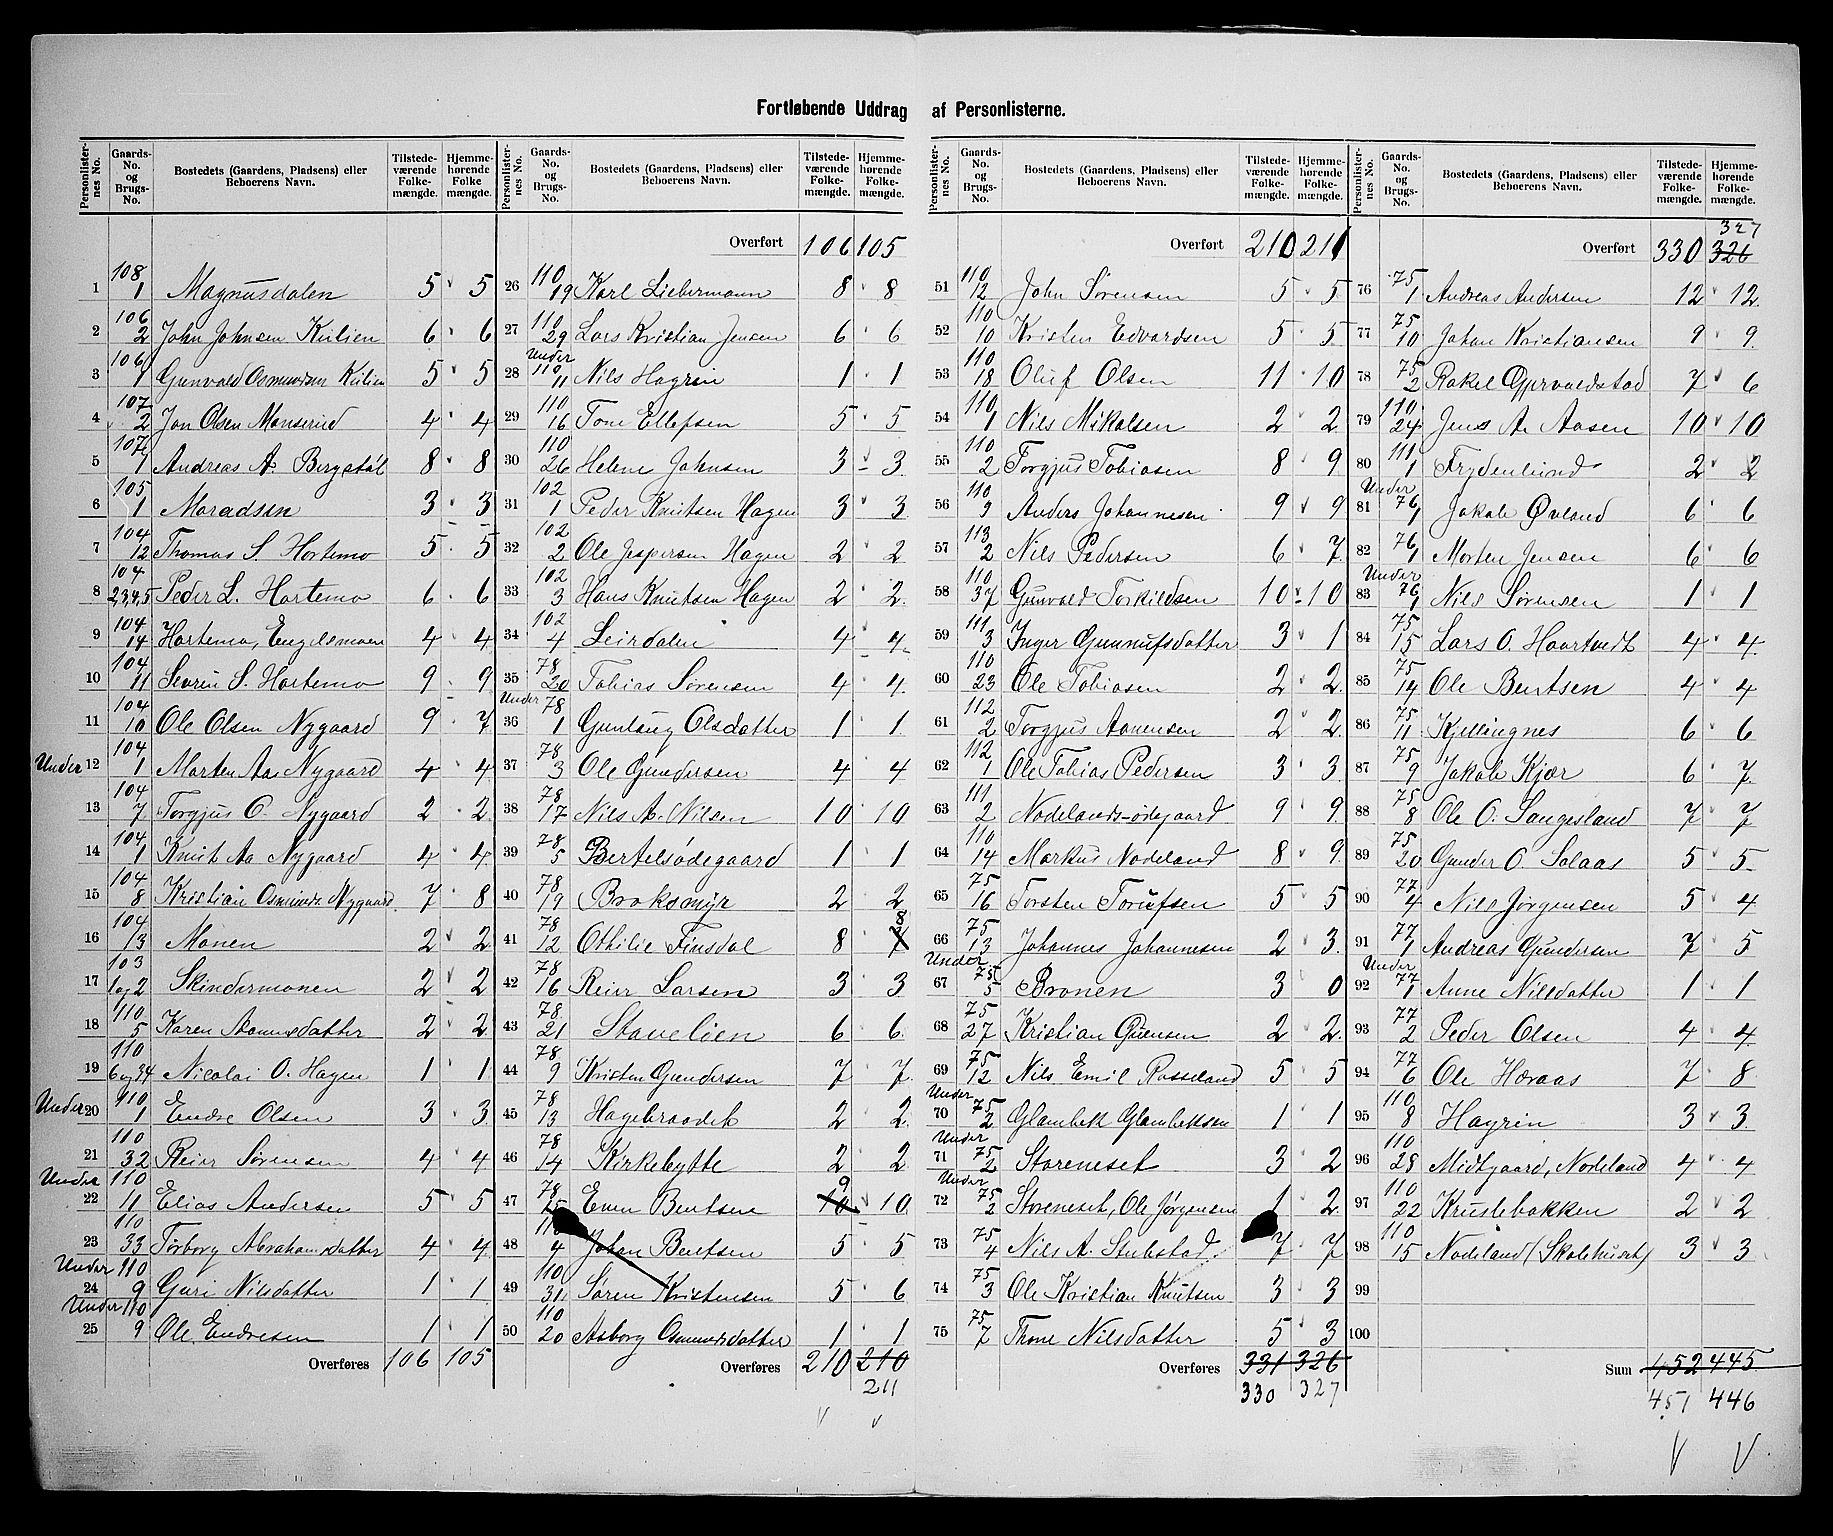 Fortløbende Uddrag af Personlisterne.
Personlister-nes No. | Gaards-No. og Brugs-No. | Bostedets (Gaardens, Pladsens) eller Beboerens Navn. | Tilstede-værende Folke-mængde. | Hjemme-hørende Folke mængde.
1 | 108 1 | Magnusdalen | 5 | 5
2 | 106 2 | John Johnsen Kulien | 6 | 6
3 | 106 1 | Gunvald Osmundsen Kulien | 5 | 5
4 | 107 2 | Jon Olsen Monserud | 4 | 4
5 | 107 1 | Andreas A. Bergstøl | 8 | 8
6 | 105 1 | Moradsen | 3 | 3
7 | 104 12 | Thomas S. Hortemo | 5 | 5
8 | 104 2,3,4,5 | Peder L. Hortemo | 6 | 6
9 | 104 14 | Hortemo, Engelsmoen | 4 | 4
10 | 104 11 | Severin S. Hortemo | 9 | 9
11 | 104 10 | Ole Olsen Nygaard | 9 | 7
12 | Under 104 1 | Morten Aa. Nygaard | 4 | 4
13 | 104 7 | Torgjus O. Nygaard | 2 | 2
14 | 104 1 | Knut Aa Nygaard | 4 | 4
15 | 104 8 | Kristian Osmunds. Nygaard | 7 | 8
16 | 104 13 | Monen | 2 | 2
17 | 103 1 og 2 | Skindermonen | 2 | 2
18 | 110 5 | Karen Aanensdatter | 2 | 2
19 | 110 6 og 34 | Nicolai O. Hagen | 1 | 1
20 | Under 110 1 | Endre Olsen | 3 | 3
21 | 110 32 | Reier Sørensen | 4 | 4
22 | Under 110 11 | Elias Andersen | 5 | 5
23 | 110 33 | Torborg Abrahamsdatter | 4 | 4
24 | Under 110 9 | Guri Nilsdatter | 1 | 1
25 | Under 110 9 | Ole Endresen | 1 | 1
Overføres 106 105
Personlister-nes No. | Gaards-No. og Brugs-No. | Bostedets (Gaardens, Pladsens) eller Beboerens Navn. | Tilstede-værende Folke-mængde. | Hjemme-hørende Folke-mængde.
Overført 106 105
26 | 110 19 | Karl Liebermann | 8 | 8
27 | 110 29 | Lars Kristian Jensen | 6 | 6
28 | Under 110 11 | Nils Hagrin | 1 | 1
29 | 110 16 | Tom Ellefsen | 5 | 5
30 | 110 26 | Helene Johnsen | 3 | 3
31 | 102 1 | Peder Knutsen Hagen | 3 | 3
32 | 102 2 | Ole Jespersen Hagen | 2 | 2
33 | 102 3 | Hans Knutsen Hagen | 2 | 2
34 | 102 4 | Leirdalen | 4 | 4
35 | 78 20 | Tobias Sørensen | 4 | 4
36 | Under 78 1 | Gunlaug Olsdatter | 1 | 1
37 | 78 3 | Ole Gundersen | 4 | 4
38 | 78 17 | Nils A. Nilsen | 10 | 10
39 | 78 5 | Bertelsødegaard | 1 | 1
40 | 78 19 | Broksmyr | 2 | 2
41 | 78 12 | Othilie Finsdal | 8 | 7 8
42 | 78 16 | Reier Larsen | 3 | 3
43 | 78 21 | Staveliien | 6 | 6
44 | 78 9 | Kristen Gundersen | 7 | 7
45 | 78 13 | Hagebraadet | 2 | 2
46 | 78 14 | Kirkebytte | 2 | 2
47 | 78 25 | Even Bentsen | 10 9 | 10
48 | 110 4 | Johan Bentsen | 5 | 5
49 | 110 31 | Søren Kristensen | 5 | 6
50 | 110 20 | Aasborg Osmundsdatter | 1 | 1
Overføres 210 210
211
Personlister-nes No. | Gaards-No. og Brugs-No. | Bostedets (Gaardens, Pladsens) eller Beboerens Navn. | Tilstede-værende Folke-mængde. | Hjemme-hørende Folke-mængde.
Overført 210 211
51 | 110 12 | John Sørensen | 5 | 5
52 | 110 10 | Kristen Edvardsen | 5 | 5
53 | 110 18 | Oluf Olsen | 11 | 10
54 | 110 1 | Nils Mikalsen | 2 | 2
55 | 110 2 | Torgjus Tobiasen | 8 | 9
56 | 110 3 | Anders Johannesen | 9 | 9
57 | 113 2 | Nils Pedersen | 6 | 7
58 | 110 37 | Gunvald Torkildsen | 10 | 10
59 | 111 3 | Inger Gunnufsdatter | 3 | 1
60 | 110 23 | Ole Tobiasen | 2 | 2
61 | 112 2 | Torgjus Aanensen | 2 | 2
62 | 112 1 | Ole Tobias Pedersen | 3 | 3
63 | 111 2 | Nodelands-ødegaard | 9 | 9
64 | 110 14 | Markus Nodeland | 8 | 9
65 | 75 16 | Torsten Torufsen | 5 | 5
66 | 75 13 | Johannes Johannesen | 2 | 3
67 | Under 75 5 | Bronen | 3 | 0
68 | 75 27 | Kristian Guensen | 2 | 2
69 | 75 12 | Nils Emil Rosseland | 5 | 5
70 | Under 75 2 | Glambek Glambeksen | 1 | 1
71 | Under 75 2 | Storeneset | 3 | 2
72 | Under 75 2 | Storeneset, Ole Jørgensen | 1 | 2
73 | 75 4 | Nils A. Stubstad | 7 | 7
74 | 75 3 | Ole Kristian Knutsen | 3 | 3
75 | 75 7 | Thone Nilsdatter | 5 | 3
Overføres 331 326
330 327
Personlister-nes No. | Gaards-No. og Brugs-No. | Bostedets (Gaardens, Pladsens) eller Beboerens Navn. | Tilstede-værende Folke-mængde. | Hjemme-hørende Folke-mængde.
327
Overført 330 326
76 | 75 1 | Andreas Andersen | 12 | 12
77 | 75 10 | Johan Kristiansen | 9 | 9
78 | 75 2 | Rakel Gjervoldstad | 7 | 6
79 | 110 24 | Jens A. Aasen | 10 | 10
80 | 111 1 | Frydenlund | 2 | 2
81 | Under 76 1 | Jakob Øvland | 6 | 6
82 | 76 1 | Morten Jensen | 6 | 6
83 | Under 76 1 | Nils Sørensen | 1 | 1
84 | 75 15 | Lars O. Haartvedt | 4 | 4
85 | 75 14 | Ole Bentsen | 4 | 4
86 | 75 11 | Kjellingnes | 6 | 6
87 | 75 9 | Jakob Kjær | 6 | 7
88 | 75 8 | Ole O. Sangesland | 7 | 7
89 | 75 20 | Gunder O. Solaas | 5 | 5
90 | 77 4 | Nils Jørgensen | 5 | 4
91 | 77 1 | Andreas Gundersen | 7 | 5
92 | Under 77 1 | Anne Nilsdatter | 1 | 1
93 | 77 2 | Peder Olsen | 4 | 4
94 | 77 6 | Ole Heraas | 7 | 8
95 | 110 8 | Hagrin | 3 | 3
96 | 110 28 | Midtgaard, Nodeland | 4 | 4
97 | 110 22 | Kruslebakken | 2 | 2
98 | 110 15 | Nodeland (Skolehuset) | 3 | 3
99
100
Sum 452 445
451 446